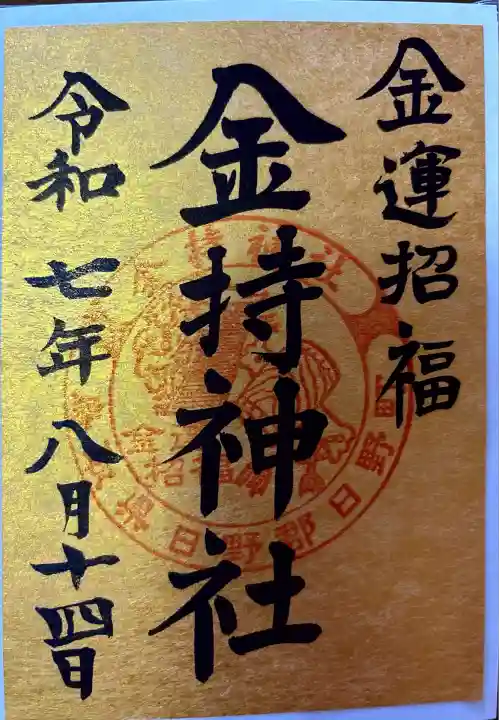 金運招福
金持神社
令和七年八月十四日
日野郡日野町